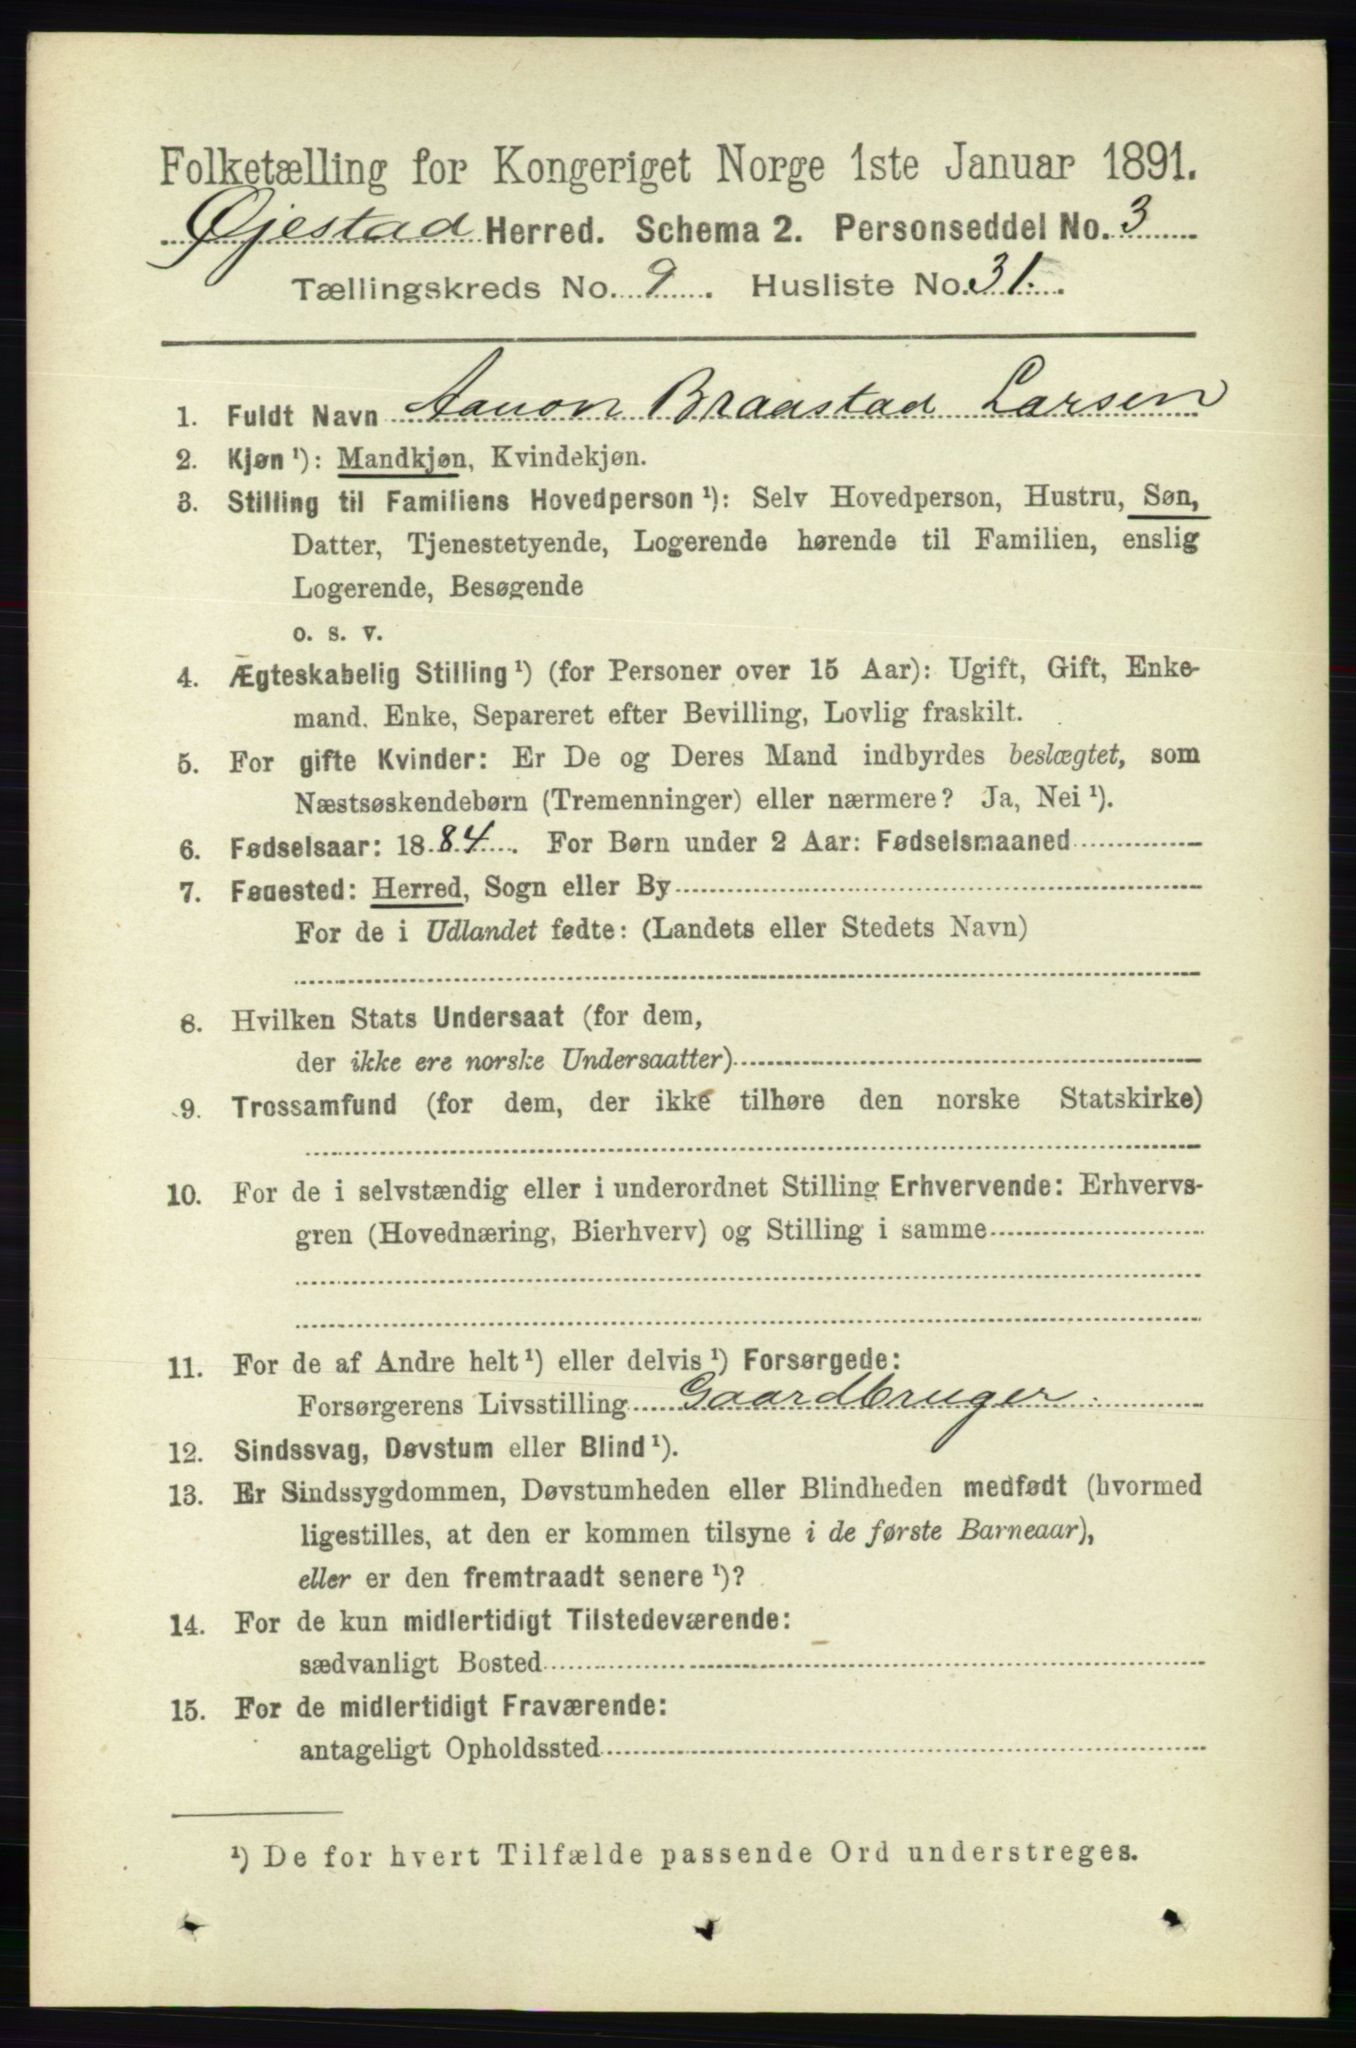 Folketælling for Kongeriget Norge 1ste Januar 1891.
Øjestad Herred. Schema 2. Personseddel No. 3
Tællingskreds No. 9. Husliste No. 31.
1. Fuldt Navn Aanon Braastad Larsen
2. Kjøn¹): Mandkjøn, Kvindekjøn.
3. Stilling til Familiens Hovedperson¹): Selv Hovedperson, Hustru, Søn,
Datter, Tjenestetyende, Logerende hørende til Familien, enslig
Logerende, Besøgende
o. s. v.
4. Ægteskabelig Stilling¹) (for Personer over 15 Aar): Ugift, Gift, Enke-
mand, Enke, Separeret efter Bevilling, Lovlig fraskilt.
5. For gifte Kvinder: Er De og Deres Mand indbyrdes beslægtet, som
Næstsøskendebørn (Tremenninger) eller nærmere? Ja, Nei¹).
6. Fødselsaar: 1884. For Børn under 2 Aar: Fødselsmaaned
7. Fødested: Herred, Sogn eller By
For de i Udlandet fødte: (Landets eller Stedets Navn)
8. Hvilken Stats Undersaat (for dem,
der ikke ere norske Undersaatter)
9. Trossamfund (for dem, der ikke tilhøre den norske Statskirke)
10. For de i selvstændig eller i underordnet Stilling Erhvervende: Erhvervs-
gren (Hovednæring, Bierhverv) og Stilling i samme
11. For de af Andre helt¹) eller delvis¹) Forsørgede:
Forsørgerens Livsstilling Gaardbruger
12. Sindssvag, Døvstum eller Blind¹).
13. Er Sindssygdommen, Døvstumheden eller Blindheden medfødt (hvormed
ligestilles, at den er kommen tilsyne i de første Barneaar),
eller er den fremtraadt senere¹)?
14. For de kun midlertidigt Tilstedeværende:
sædvanligt Bosted
15. For de midlertidigt Fraværende:
antageligt Opholdssted
¹) De for hvert Tilfælde passende Ord understreges.